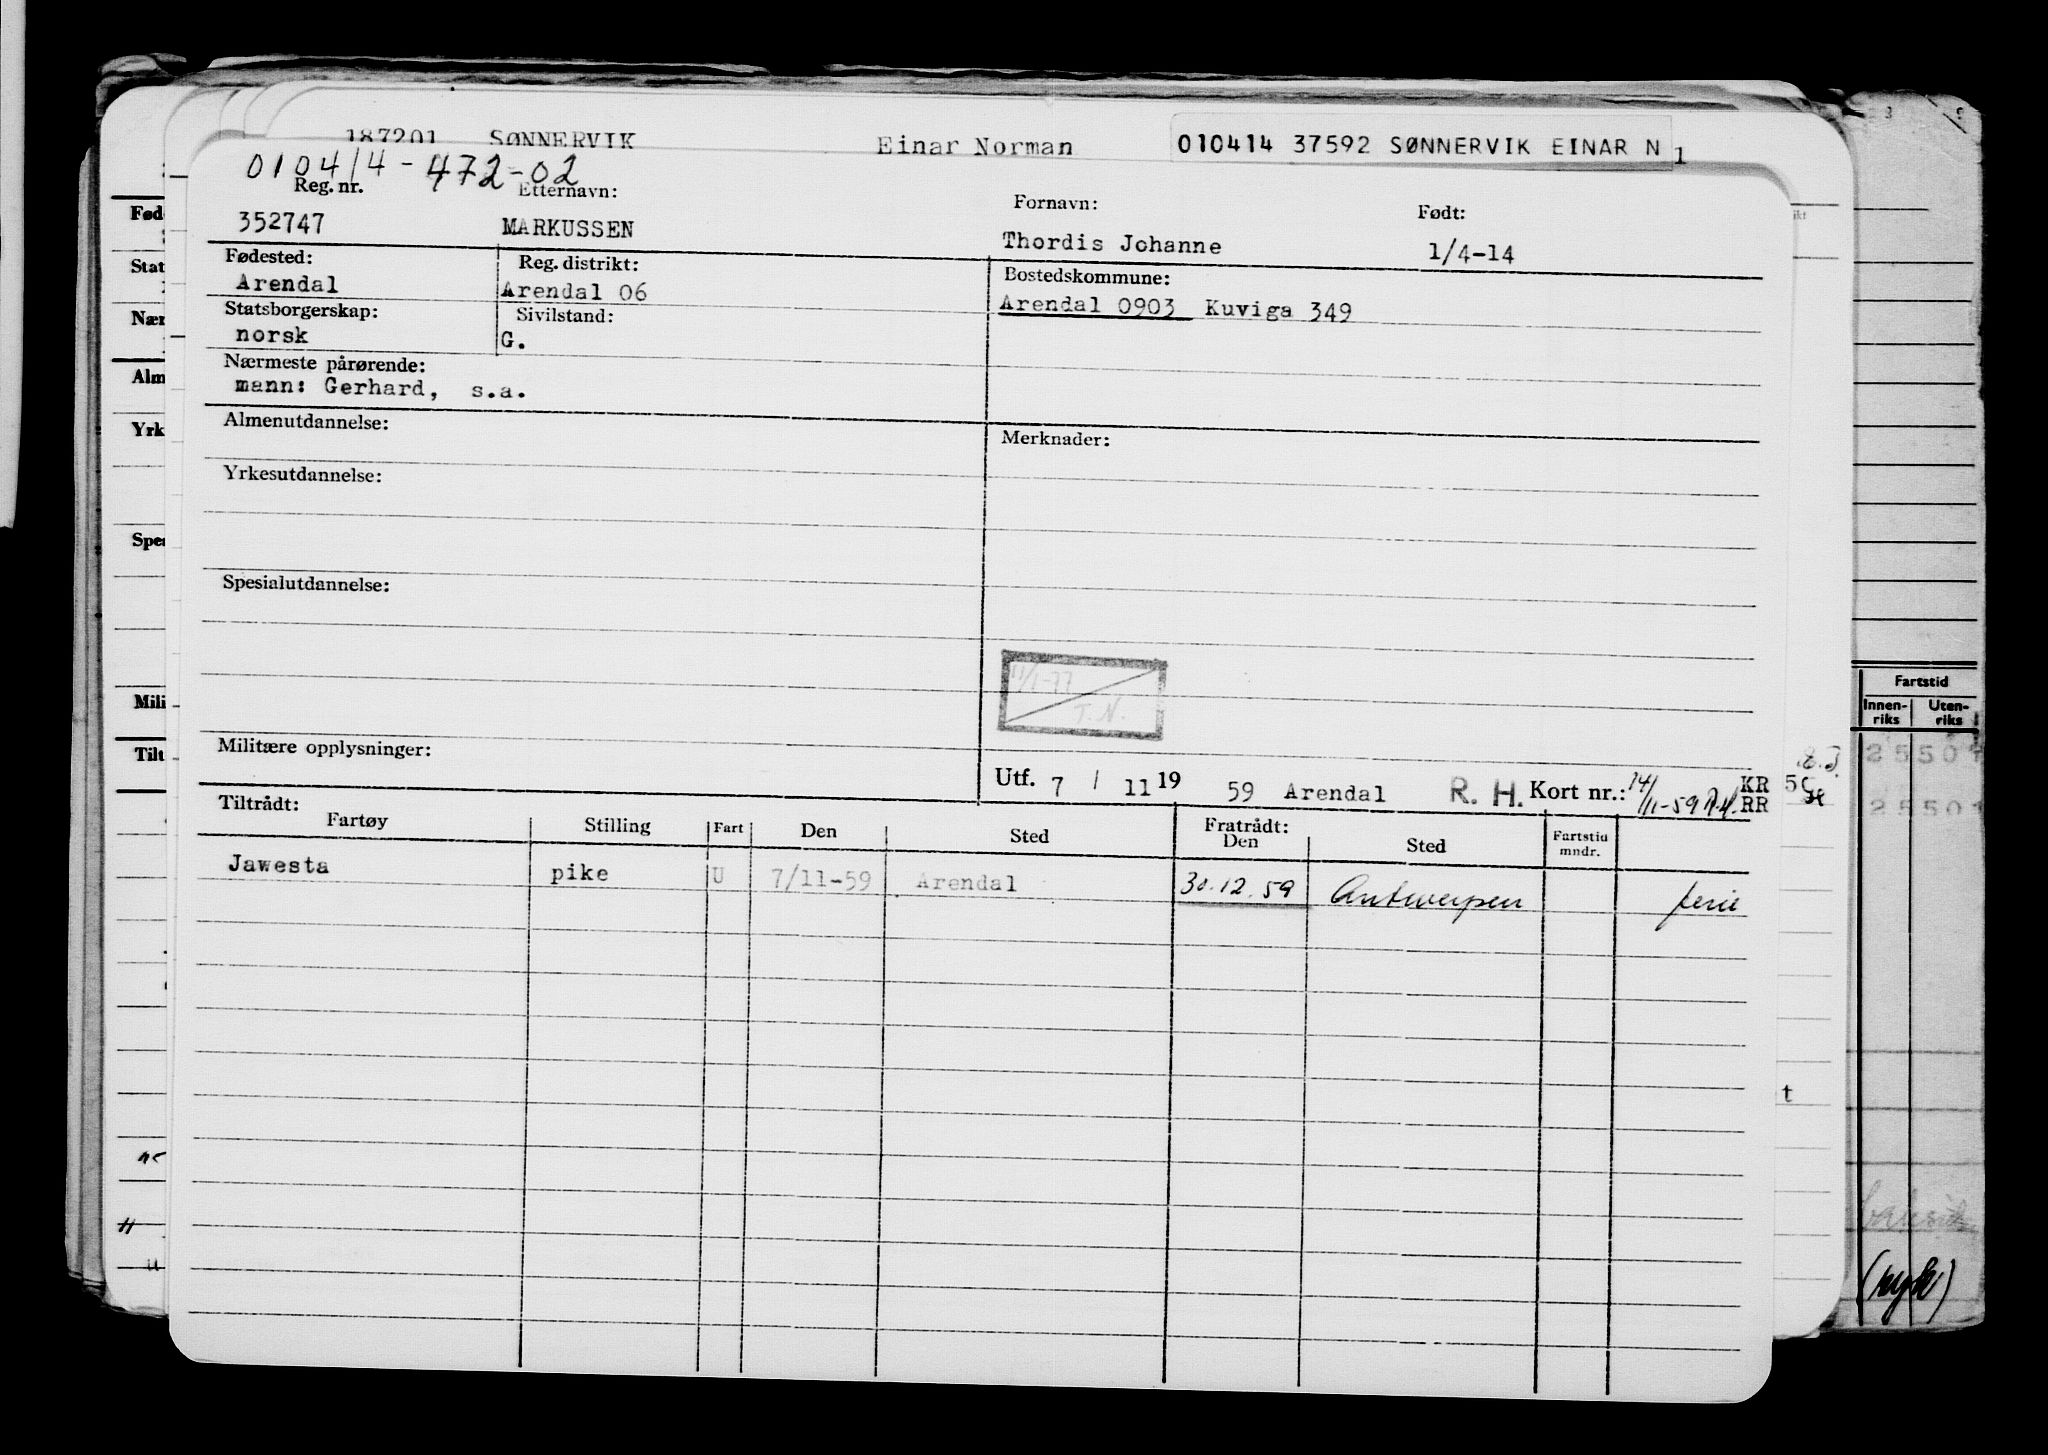 187201 SØNNERVIK Einar Norman 010414 37592 SØNNERVIK EINAR N 1
010414-472-02
Reg. nr. Etternavn: Fornavn: Født:
352747 MARKUSSEN Thordis Johanne 1/4-14
Fødested: Reg. distrikt: Bostedskommune:
Arendal Arendal 06 Arendal 0903 Kuviga 349
Statsborgerskap: Sivilstand:
norsk G.
Nærmeste pårørende:
mann: Gerhard, s.a.
Almenutdannelse: Merknader:
Yrkesutdannelse:
Spesialutdannelse:
11/1-77
T.N.
Militære opplysninger:
Utf. 7 / 11 19 59 Arendal R. H. Kort nr.: 14/11-59 KR RR
Tiltrådt: Fratrådt:
Fartøy Stilling Fart Den Sted Den Sted Fartstid mndr.
Jawesta pike U 7/11-59 Arendal 30.12.59 Antwerpen ferie
Fød
Stat
Nær
Alm
Yrk
Spe
Mili
Tilt
Fartstid
Innen-riks Uten-riks
25501
25501
t
(nyk)